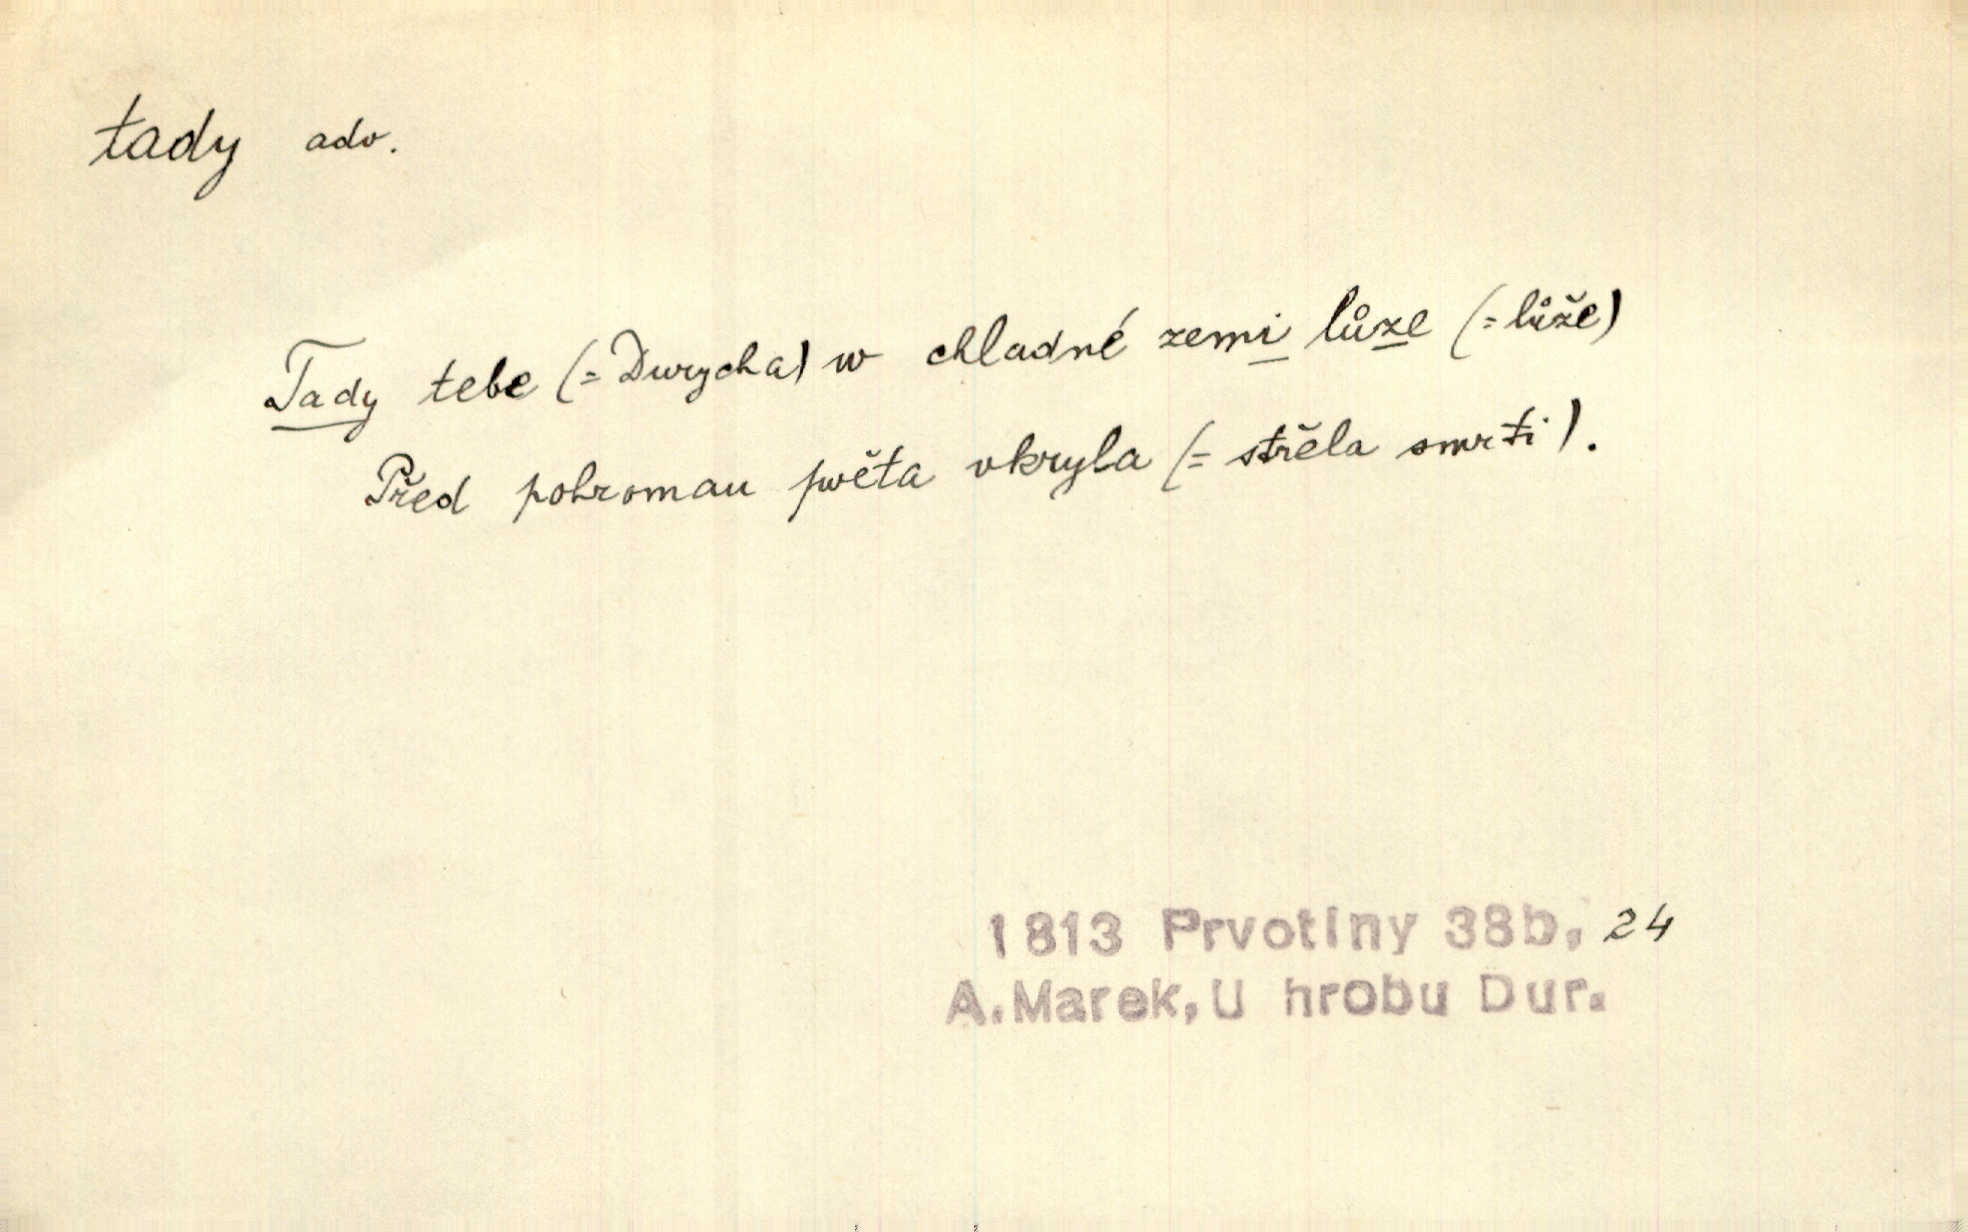 tady adv.
Tady tebe (= Durycha) w chladné zemi lůze (= lůže)
Před pohromau swěta vkryla (= střela smrti).
1813 Prvotiny 38b, 24
A. Marek, U hrobu Dur.